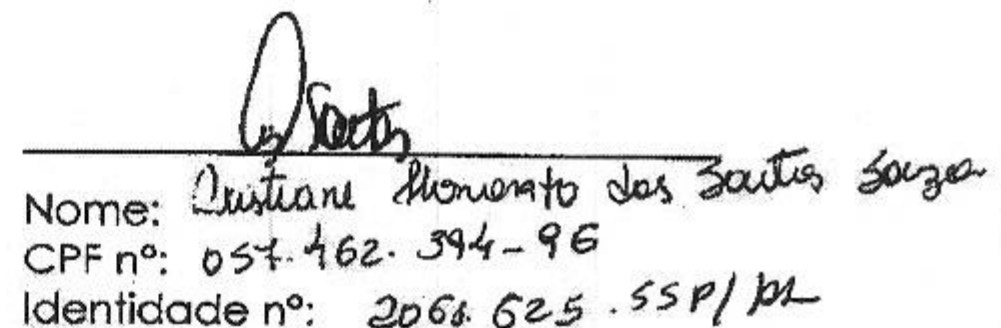 Santos
Nome: Cristiane Honorato dos Santos Souza
CPF nº: 057.462.394-96
Identidade nº: 2068.625.SSP/AL